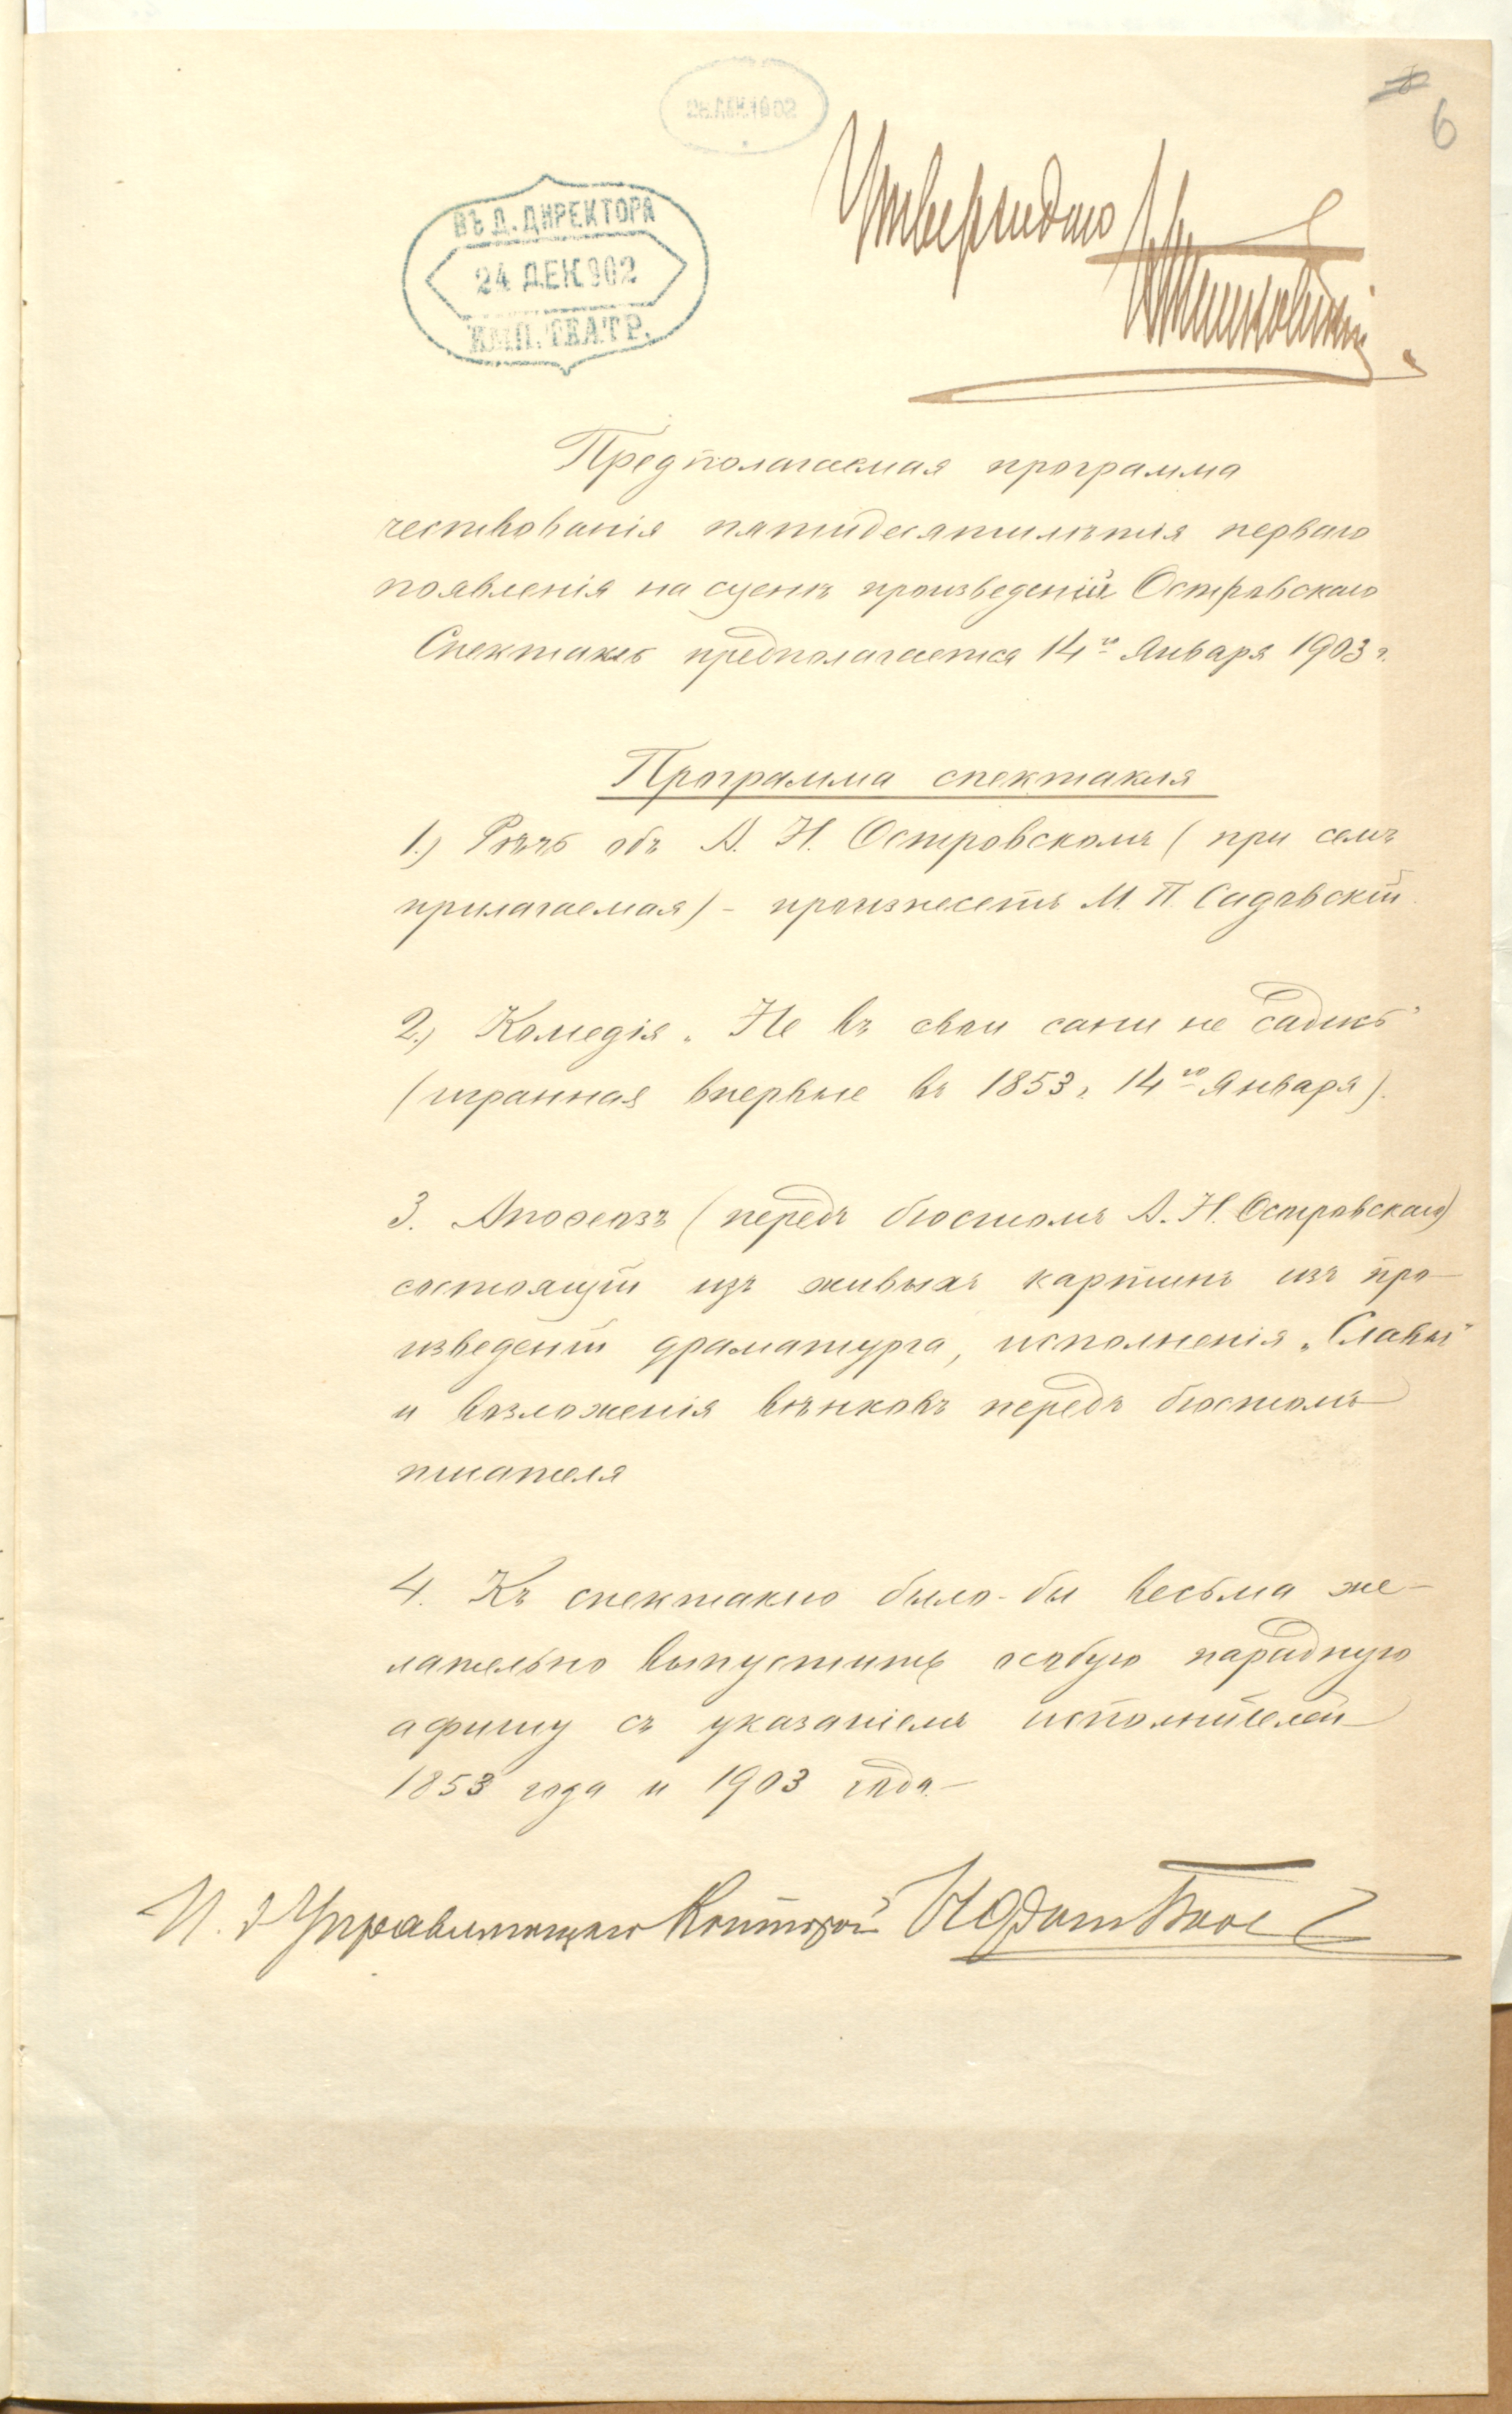 6
ВЪ Д. ДИРЕКТОРА
24 ДЕК 902
ИМП. ТЕАТР.
Утверждаю
Предполагаемая программа
чествованія пятидесятилѣтія перваго
появленія на сценѣ произведеній Островскаго
Спектакль предполагается 14го Января 1903 г.
Программа спектакля
1.) Рѣчь объ А. Н. Островскомъ (при семъ
прилагаемая) - произнесетъ М. П. Садовскій.
2.) Комедія „Не въ свои сани не садись"
(игранная впервые въ 1853 г. 14го Января).
3. Апоѳеозъ (передъ бюстомъ А. Н. Островскаго)
состоящій изъ живыхъ картинъ изъ про-
изведеній драматурга, исполненія „Славы"
и возложенія вѣнковъ передъ бюстомъ
писателя
4. Къ спектаклю было-бы весьма же-
лательно выпустить особую парадную
афишу съ указаніемъ исполнителей
1853 года и 1903 года.
И. д Управляющаго Конторой